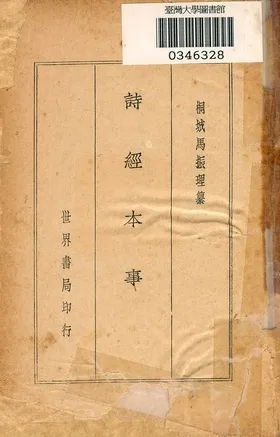 臺灣大學圖書館
0346328
桐城馬振理纂
詩經本事
世界書局印行